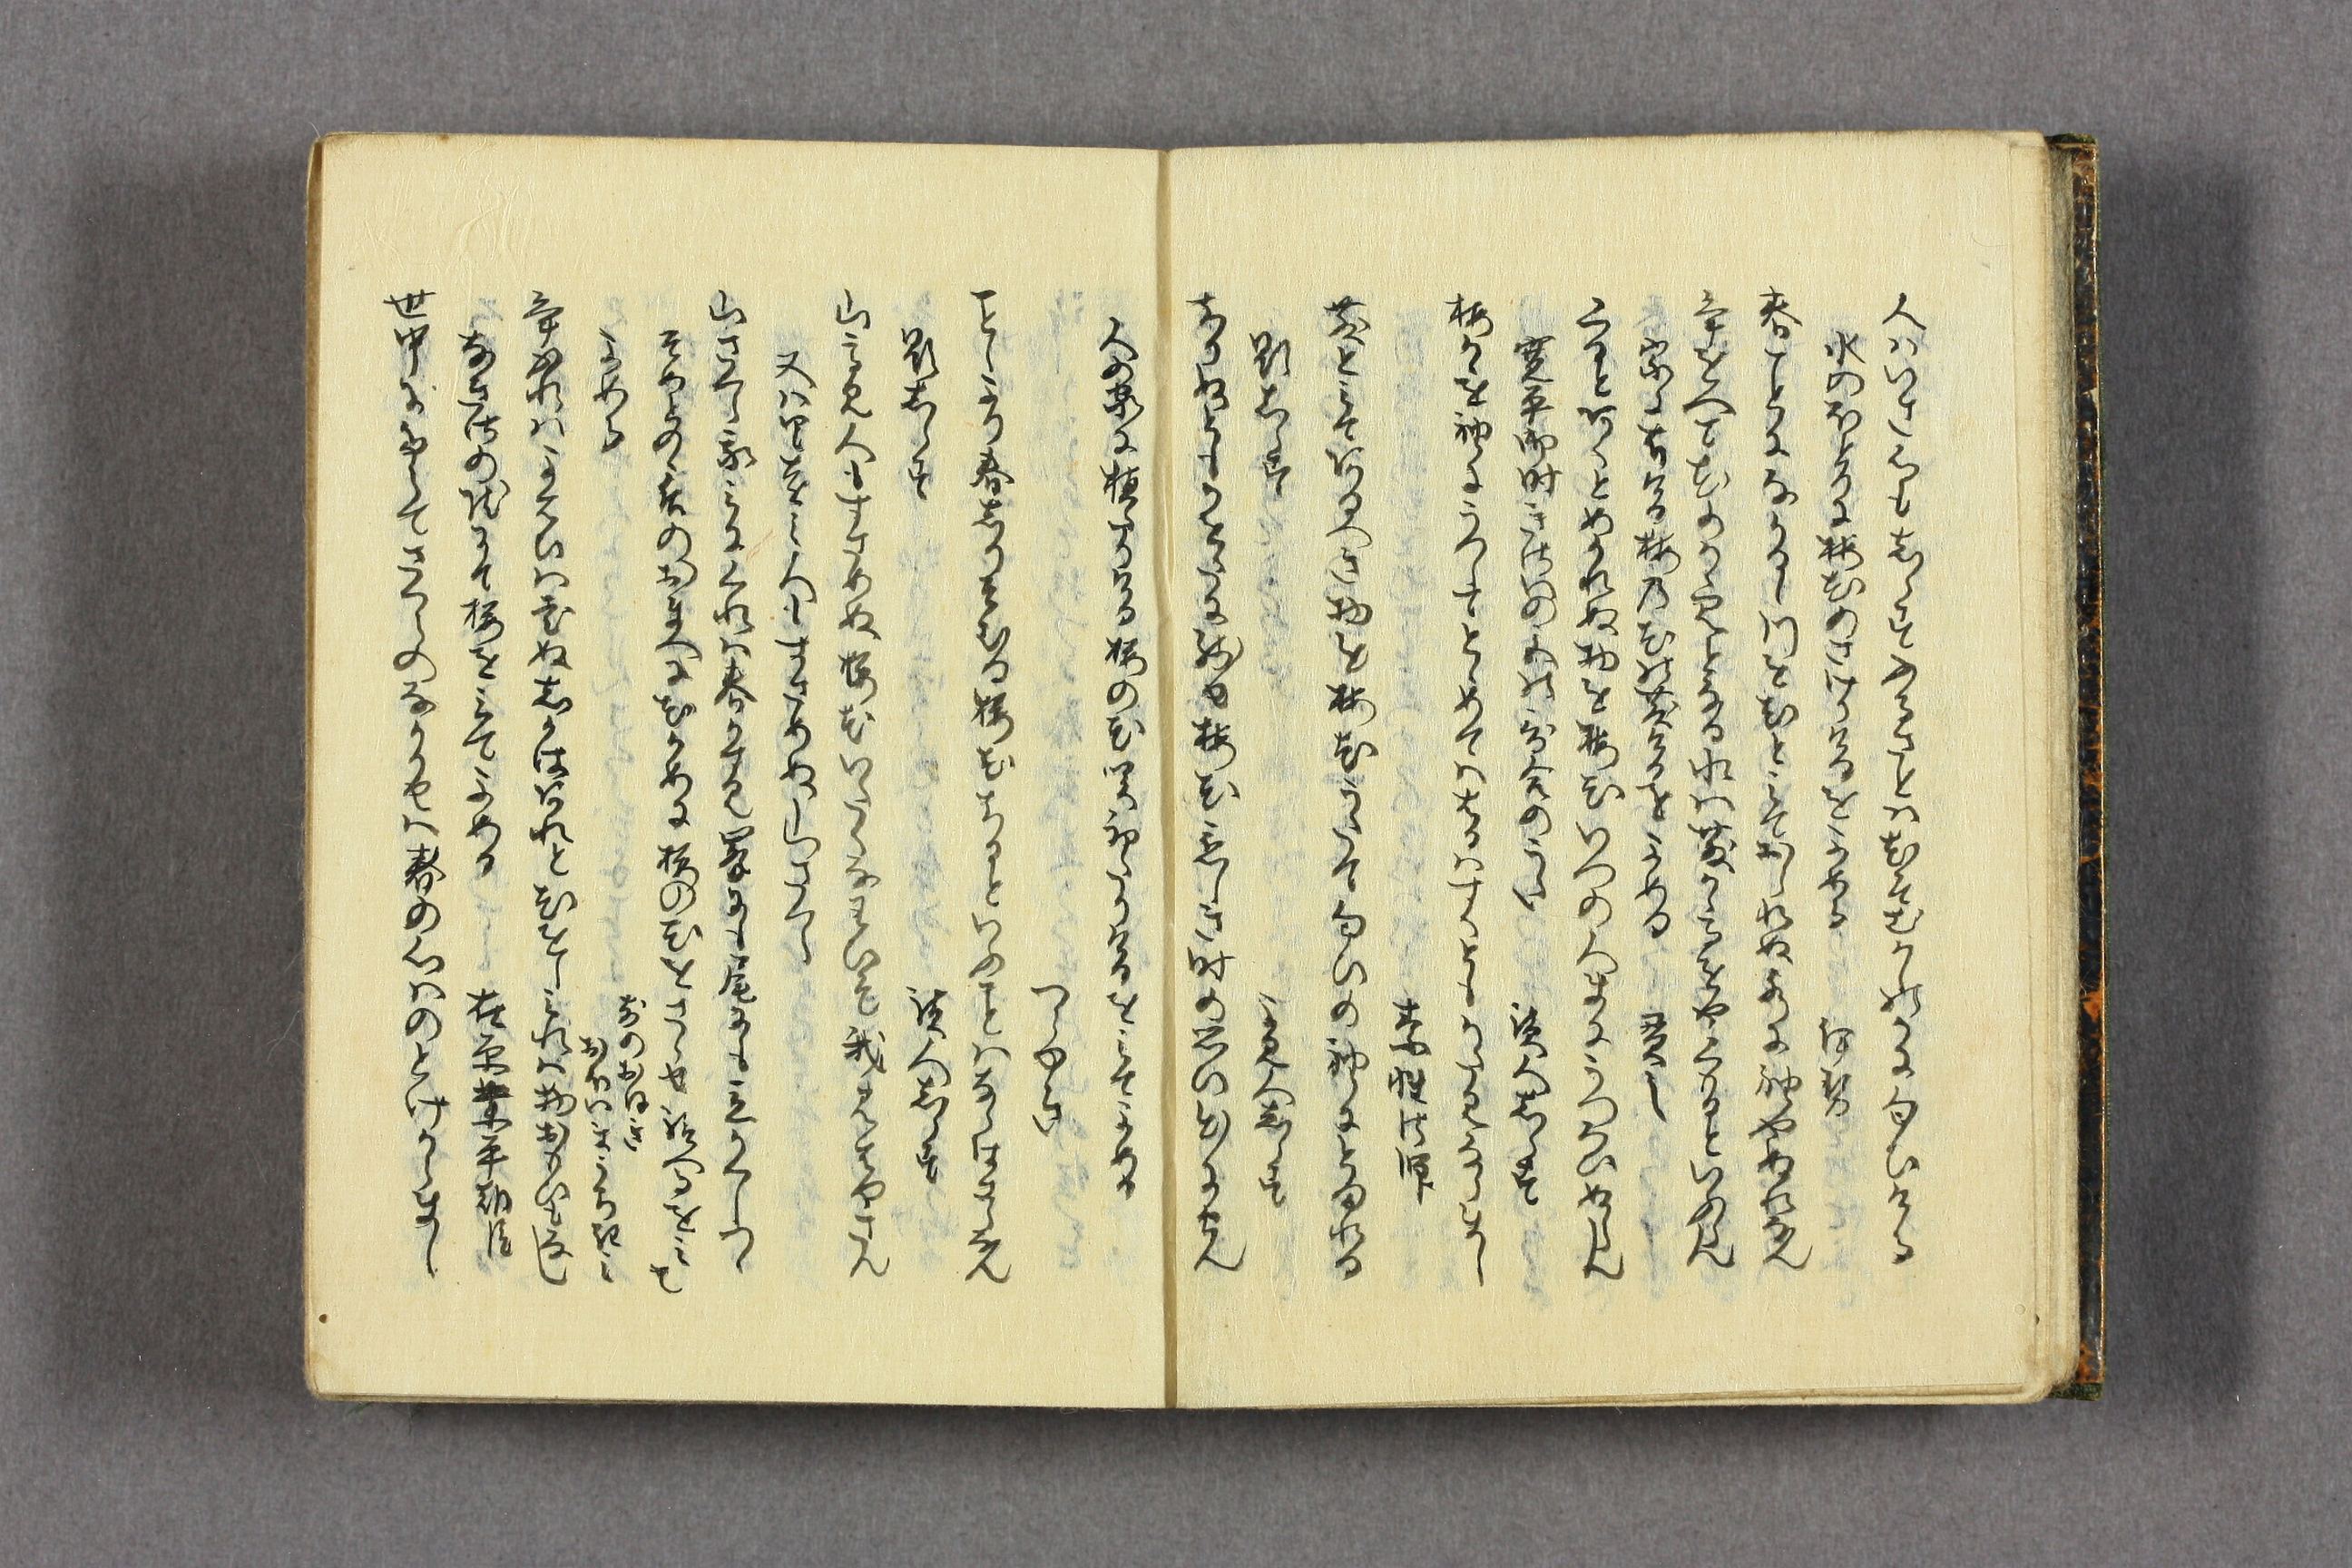 人はいさ心もしらすふるさとは花そむかしの香ににほひける
水のほとりに梅花のさけりけるをよめる　伊勢
春ことになかるゝ河を花とみておられぬ水に袖やぬれなん
年をへて花のかゝみとなる水はちりかゝるをやくもるといふらん
家にありける梅の花のちりけるをよめる　貫之
くるとあくとめかれぬ物を梅花いつの人まにうつろひぬらん
寛平御時きさいの宮の哥合のうた　読人しらす
梅かゝを袖にうつしてとゝめては春はすくともかたみならまし
素性法師
ちるとみてあるへき物を梅花うたてにほひの袖にとまれる
題しらす　よみ人しらす
ちりぬとも香をたにのこせ梅花恋しき時のおもひいてにせん
人の家に植たりける桜の花さきはしめたりけるをみてよめる
つらゆき
ことしより春しりそむる桜花ちるといふことはならはさらなん
題しらす　読人しらす
山たかみ人もすさめぬ桜花いたくなわひそ我みはやさん
又は里とをみ人もすさめぬ山さくら
山さくら我みにくれは春霞峯にも尾にも立かくしつゝ
そめとのゝ后の御まへに花かめに桜の花をさゝせ給へるをみて
よめる
年ふれはよはひは老ぬしかはあれと花をしみれは物思ひもなし
なきさの院にて桜をみてよめる　在原業平朝臣
世中にたえてさくらのなかりせは春の心はのとけからまし